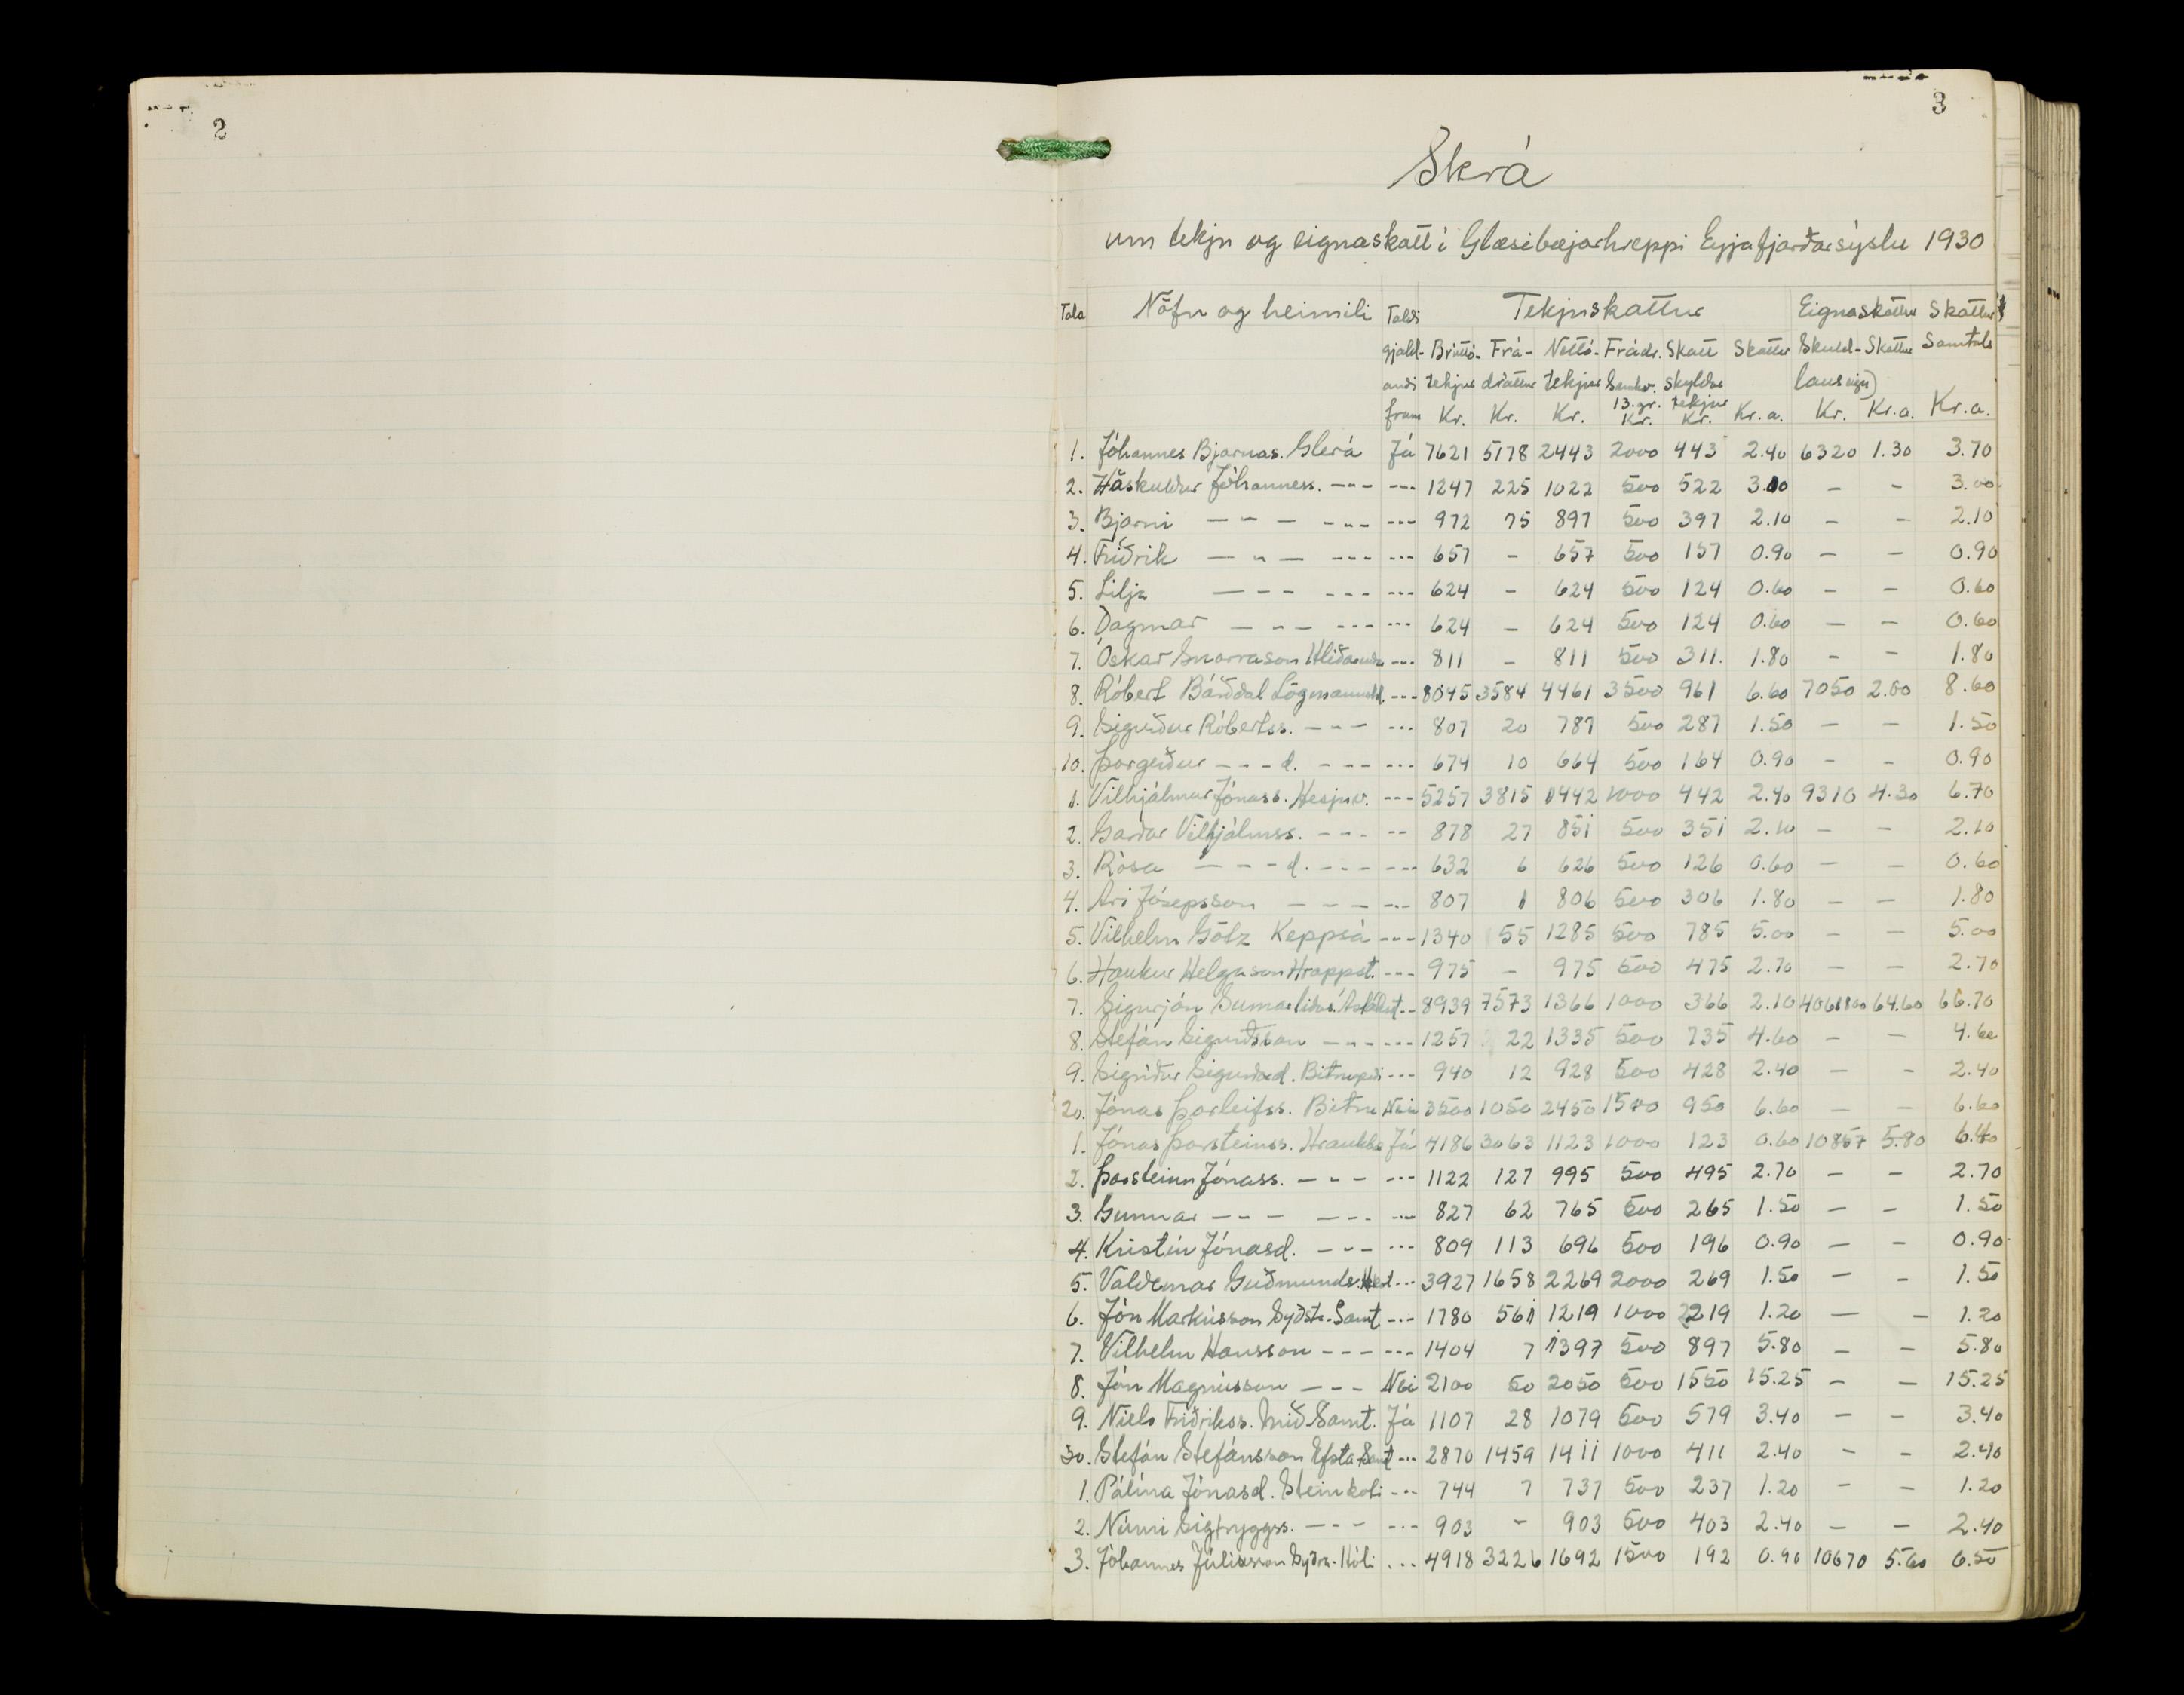 2
3
Skrá
um tekju og eignaskatt í Glæsibæjarhreppi Eyjafjarðarsýslu 1930
Tala Nöfn og heimili Taldi Tekjuskattur Eignaskattur Skattur
gjald- Brúttó- Frá- Nettó- Frádr. Skatt Skattur Skuld- Skattur Samtals
andi tekjur dráttur tekjur Samkv. skyldar laus eign
fram Kr. Kr. Kr. 13. gr. Kr. tekjur Kr. Kr. a. Kr. Kr. a. Kr. a.
1. Jóhannes Bjarnas. Glerá Já 7621 5178 2443 2000 443 2.40 6320 1.30 3.70
2. Höskuldur Jóhanness. --- --- 1247 225 1022 500 522 3.00 - - 3.00
3. Bjarni --- --- --- 972 75 897 500 397 2.10 - - 2.10
4. Friðrik --- --- --- 657 - 657 500 157 0.90 - - 0.90
5. Lilja --- --- --- 624 - 624 500 124 0.60 - - 0.60
6. Dagmar --- --- --- 624 - 624 500 124 0.60 - - 0.60
7. Óskar Snorrason --- 811 - 811 500 311. 1.80 - - 1.80
8. Róbert Bárðdal Lögmannshl. --- 8045 3584 4461 3500 961 6.60 7050 2.00 8.60
9. Sigurður Róbertss. --- --- 807 20 787 500 287 1.50 - - 1.50
10. Þorgerður --- d. --- --- 674 10 664 500 164 0.90 - - 0.90
1. Vilhjálmur Jónass. Hesjuv. --- 5257 3815 1442 1000 442 2.40 9310 4.30 6.70
2. Garðar Vilhjálmss. --- -- 878 27 851 500 351 2.10 - - 2.10
3. Rósa --- d. --- --- 632 6 626 500 126 0.60 - - 0.60
4. Ari Jósepsson --- --- 807 1 806 500 306 1.80 - - 1.80
5. Vilhelm Götz Keppsá --- 1340 55 1285 500 785 5.00 - - 5.00
6. Haukur Helgason Hrappst. --- 975 - 975 500 475 2.70 - - 2.70
7. Sigurjón Sumarliðas. -- 8939 7573 1366 1000 366 2.10 64.60 66.70
8. Stefán Sigurðsson --- --- 1257 22 1335 500 735 4.60 - - 4.60
9. Sigríður Sigurðard. Bitrugerði --- 940 12 928 500 428 2.40 - - 2.40
20. Jónas Þorleifss. Bitru Nei 3500 1050 2450 1500 950 6.60 - - 6.60
1. Jónas Þorsteinss. Já 4186 3063 1123 1000 123 0.60 10857 5.80 6.40
2. Þorsteinn Jónass. --- --- 1122 127 995 500 495 2.70 - - 2.70
3. Gunnar --- --- --- 827 62 765 500 265 1.50 - - 1.50
4. Kristín Jónasd. --- --- 809 113 696 500 196 0.90 - - 0.90
5. Valdemar Guðmunds. --- 3927 1658 2269 2000 269 1.50 - - 1.50
6. Jón Markússon Syðsta-Samt. --- 1780 561 1219 1000 219 1.20 - - 1.20
7. Vilhelm Hansson --- --- 1404 7 1397 500 897 5.80 - - 5.80
8. Jón Magnússon --- Nei 2100 50 2050 500 1550 15.25 - - 15.25
9. Niels Friðrikss. Mið Samt. Já 1107 28 1079 500 579 3.40 - - 3.40
30. Stefán Stefánsson Efsta Samt --- 2870 1459 1411 1000 411 2.40 - - 2.40
1. Pálína Jónasd. Steinkoti --- 744 7 737 500 237 1.20 - - 1.20
2. Númi Sigtryggss. --- --- 903 - 903 500 403 2.40 - - 2.40
3. Jóhannes Júlíusson Syðra-Hóli ... 4918 3226 1692 1500 192 0.90 10670 5.60 6.50